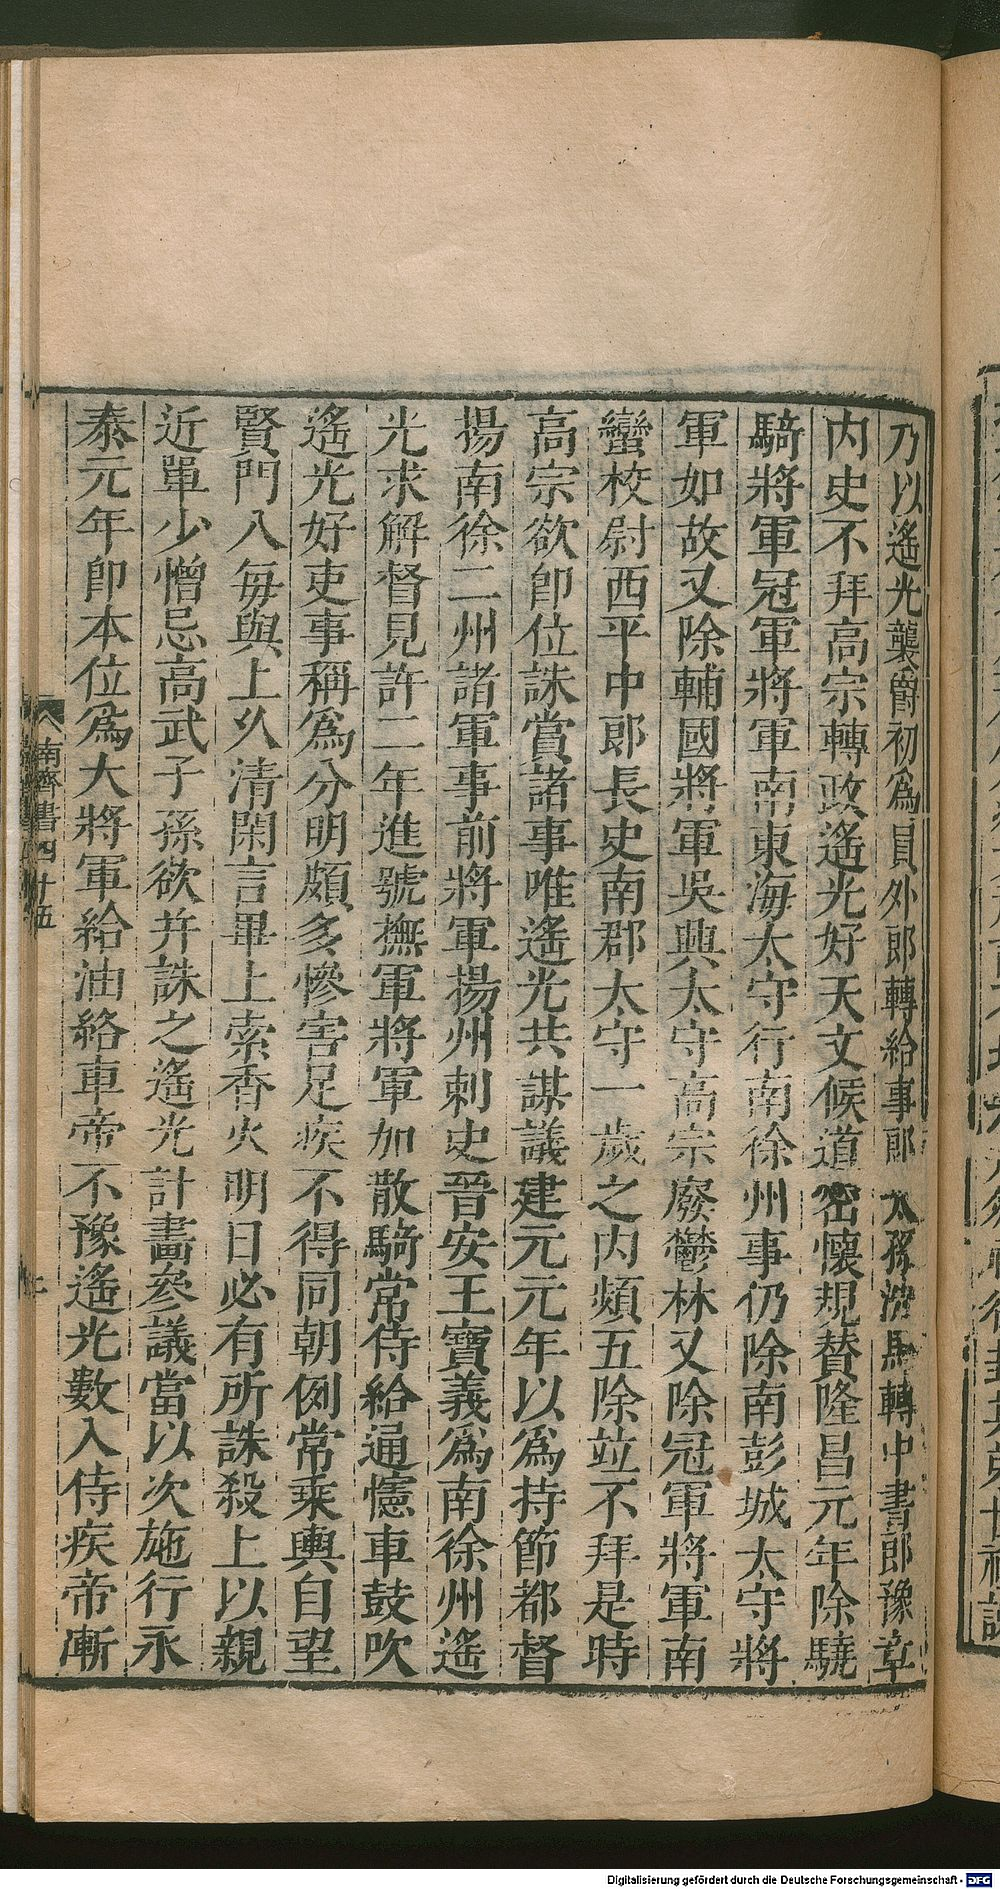 乃以遙光襲爵初爲員外郎轉給事郎太孫洗馬轉中書郎豫章
内史不拜高宗轉政遙光好天文候道密懷規贊隆昌元年除驍
騎將軍冠軍將軍南東海太守行南徐州事仍除南彭城太守將
軍如故又除輔國將軍吳興太守高宗廢鬱林又除冠軍將軍南
蠻校尉西平中郎長史南郡太守一歲之内頻五除竝不拜是時
高宗欲卽位誅賞諸事唯遙光共謀議建元元年以爲持節都督
揚南徐二州諸軍事前將軍揚州刺史晉安王寶義爲南徐州遙
光求解督見許二年進號撫軍將軍加散騎常侍給通幰車鼓吹
遙光好吏事稱爲分明頗多慘害足疾不得同朝例常乘輿自望
賢門入每與上久清閑言畢上索香火明日必有所誅殺上以親
近單少憎忌高武子孫欲幷誅之遙光計畫參議當以次施行永
泰元年卽本位爲大將軍給油絡車帝不豫遙光數入侍疾帝漸
南齊書四十五
Digitalisierung gefördert durch die Deutsche Forschungsgemeinschaft - DFG